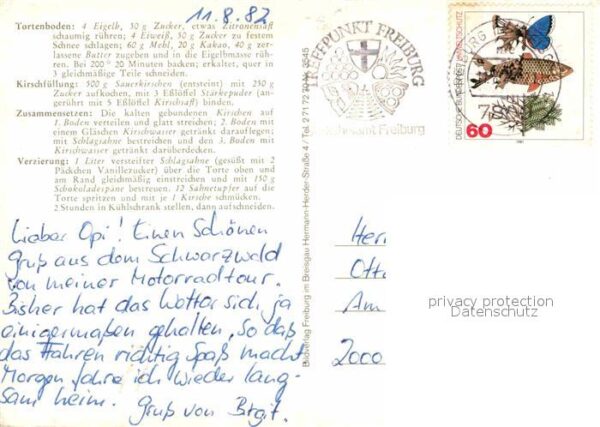 11.8.82
Tortenboden: 4 Eigelb, 50 g Zucker, etwas Zitronensaft
schaumig rühren; 4 Eiweiß, 50 g Zucker zu festem
Schnee schlagen; 60 g Mehl, 20 g Kakao, 40 g zer-
lassene Butter zugeben und in die Eigelbmasse rüh-
ren. Bei 200° 20 Minuten backen; erkaltet, quer in
3 gleichmäßige Teile schneiden.
Kirschfüllung: 500 g Sauerkirschen (entsteint) mit 250 g
Zucker aufkochen, mit 3 Eßlöffel Stärkepuder (an-
gerührt mit 5 Eßlöffel Kirschsaft) binden.
Zusammensetzen: Die kalten gebundenen Kirschen auf
1. Boden verteilen und glatt streichen; 2. Boden mit
einem Gläschen Kirschwasser getränkt darauflegen;
mit Schlagsahne bestreichen und den 3. Boden mit
Kirschwasser getränkt darüberdecken.
Verzierung: 1 Liter versteifter Schlagsahne (gesüßt mit 2
Päckchen Vanillezucker) über die Torte oben und
am Rand gleichmäßig einstreichen und mit 150 g
Schokoladespäne bestreuen. 12 Sahnetupfer auf die
Torte spritzen und mit je 1 Kirsche schmücken.
2 Stunden in Kühlschrank stellen, dann aufschneiden.
Lieber Opi! Einen Schönen
Gruß aus dem Schwarzwald
von meiner Motorradtour.
Bisher hat das Wetter sich ja
einigermaßen gehalten, so daß
das Fahren richtig Spaß macht
Morgen fahre ich wieder lang-
sam heim. Gruß von Birgit.
Freiburg im Breisgau Hermann-Herder-Straße 4 / Tel. 2 71 72
TREFFPUNKT FREIBURG
Freiburg
DEUTSCHE BUNDESPOST
60
Her
Otto
Am
2000
privacy protection
Datenschutz